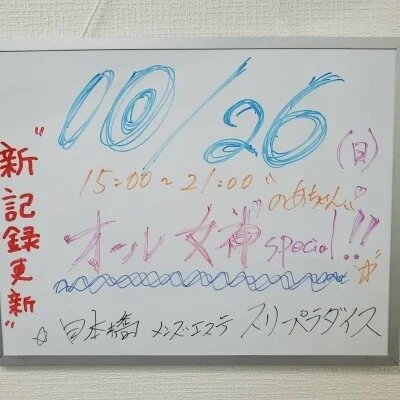 10/26(日)
15:00~21:00
"のあちゃん"
オール女神special!!
"新記録更新"
☆日本橋 メンズエステ スリーパラダイス